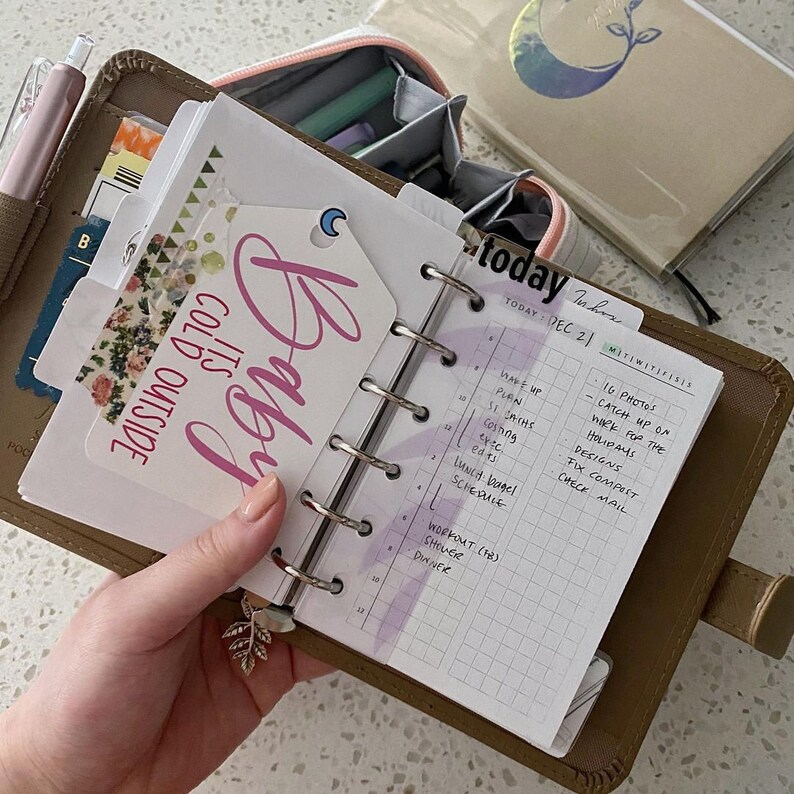 Baby
ITS
COLD OUTSIDE
B
POC
today
Inbox
TODAY: DEC 21
M|T|W|T|F|S|S
6
8
10
12
2
4
6
8
10
12
WAKE UP
PLAN
Costing
exec.
edits
LUNCH: bagel
SCHEDULE
WORKOUT (FB)
SHOWER
· DINNER
· IG PHOTOS
– CATCH UP ON
WORK FOR THE
HOLIDAYS
· DESIGNS
FIX COMPOST
· CHECK MAIL